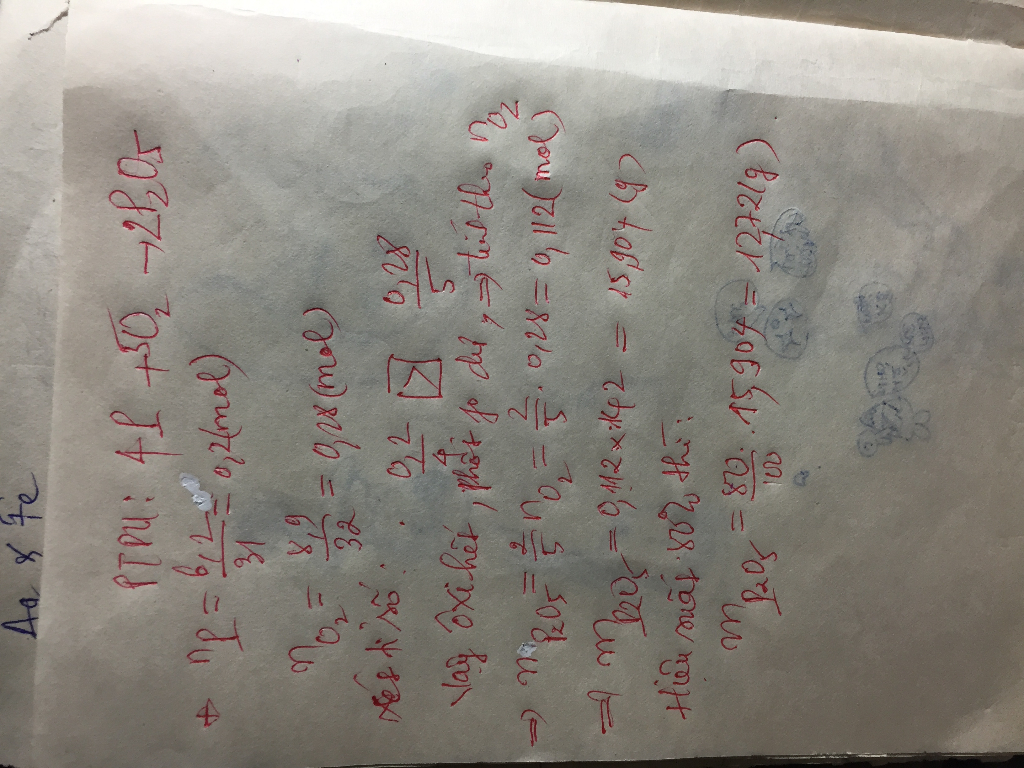 Aa & Fe
PTPƯ: 4P + 5O2 → 2P2O5
+ nP = 6,2/31 = 0,2(mol)
nO2 = 8,9/32 = 0,28(mol)
Xét tỉ số: 0,2/4 > 0,28/5
Vậy ôxi hết, phốt pho dư, ⇒ tính theo nO2
⇒ nP2O5 = 2/5 nO2 = 2/5 . 0,28 = 0,112(mol)
⇒ mP2O5 = 0,112 x 142 = 15,904 (g)
Hiệu suất 80% thì:
mP2O5 = 80/100 . 15,904 = 12,72(g)